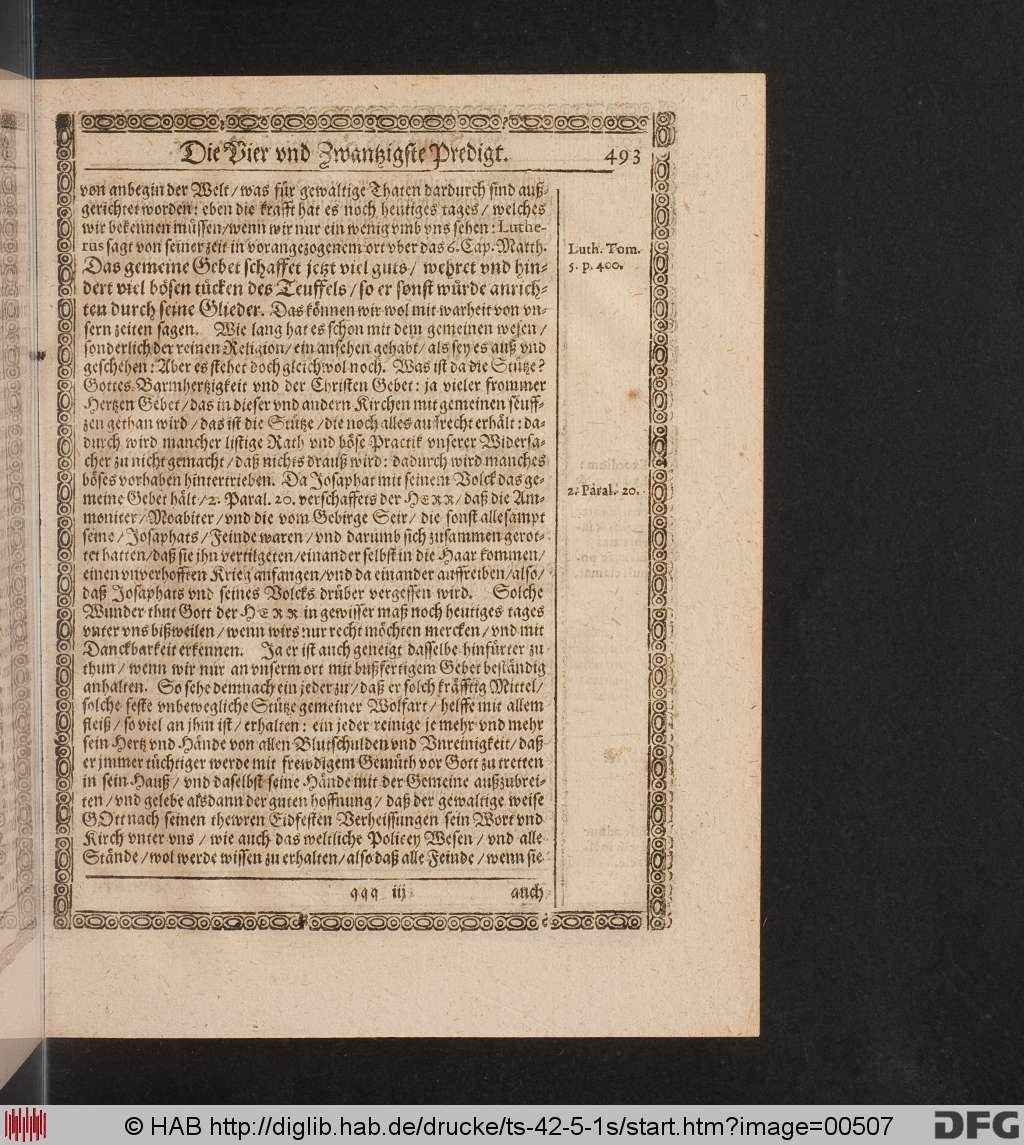 Die Vier vnd Zwantzigste Predigt. 493
von anbegin der Welt / was für gewaltige Thaten dardurch sind auß-
gerichtet worden: eben die krafft hat es noch heutiges tages / welches
wir bekennen müssen / wenn wir nur ein wenig vmb vns sehen: Luthe-
rus sagt von seiner zeit in vorangezogenem ort vber das 6. Cap. Matth.
Das gemeine Gebet schaffet jetzt viel guts / wehret vnd hin-
dert viel bösen tücken des Teuffels / so er sonst würde anrich-
ten durch seine Glieder. Das können wir wol mit warheit von vn-
sern zeiten sagen. Wie lang hat es schon mit dem gemeinen wesen /
sonderlich der reinen Religion / ein ansehen gehabt / als sey es auß vnd
geschehen: Aber es stehet doch gleichwol noch. Was ist da die Stütze?
Gottes Barmhertzigkeit vnd der Christen Gebet: ja vieler frommer
Hertzen Gebet / das in dieser vnd andern Kirchen mit gemeinen seuff-
zen gethan wird / das ist die Stütze / die noch alles auffrecht erhält: da-
durch wird mancher listige Rath vnd böse Practik vnserer Widersa-
cher zu nicht gemacht / daß nichts drauß wird: dadurch wird manches
böses vorhaben hintertrieben. Da Josaphat mit seinem Volck das ge-
meine Gebet hält / 2. Paral. 20. verschaffets der HERR / daß die Am-
moniter / Moabiter / vnd die vom Gebirge Seir / die sonst allesampt
seine / Josaphats / Feinde waren / vnd darumb sich zusammen gerot-
tet hatten / daß sie jhn vertilgeten / einander selbst in die Haar kommen /
einen vnverhofften Krieg anfangen / vnd da einander auffreiben / also /
daß Josaphats vnd seines Volcks drüber vergessen wird. Solche
Wunder thut Gott der HERR in gewisser maß noch heutiges tages
vnter vns bißweilen / wenn wirs nur recht möchten mercken / vnd mit
Danckbarkeit erkennen. Ja er ist auch geneigt dasselbe hinfürter zu
thun / wenn wir nur an vnserm ort mit bußfertigem Gebet beständig
anhalten. So sehe demnach ein jeder zu / daß er solch kräfftig Mittel /
solche feste vnbewegliche Stütze gemeiner Wolfart / helffe mit allem
fleiß / so viel an jhm ist / erhalten: ein jeder reinige je mehr vnd mehr
sein Hertz vnd Hände von allen Blutschulden vnd Vnreinigkeit / daß
er jmmer tüchtiger werde mit frewdigem Gemüth vor Gott zu tretten
in sein Hauß / vnd daselbst seine Hände mit der Gemeine außzubrei-
ten / vnd gelebe alsdann der guten hoffnung / daß der gewaltige weise
GOtt nach seinen thewren Eidfesten Verheissungen sein Wort vnd
Kirch vnter vns / wie auch das weltliche Policey Wesen / vnd alle
Stände / wol werde wissen zu erhalten / also daß alle Feinde / wenn sie
qqq iij auch
Luth. Tom.
5. p. 400.
2. Paral. 20.
© HAB http://diglib.hab.de/drucke/ts-42-5-1s/start.htm?image=00507
DFG